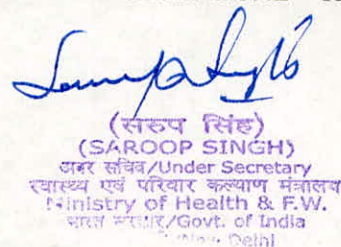 (सरुप सिंह)
(SAROOP SINGH)
अवर सचिव/Under Secretary
स्वास्थ्य एवं परिवार कल्याण मंत्रालय
Ministry of Health & F.W.
भारत सरकार/Govt. of India
New Delhi